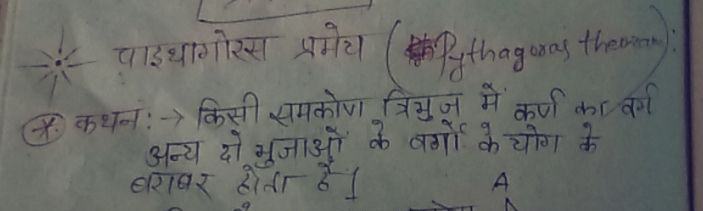 पाइथागोरस प्रमेय (Pythagoras theorem):
* कथन:→ किसी समकोण त्रिभुज में कर्ण का वर्ग
अन्य दो भुजाओं के वर्गों के योग के
बराबर होता है।
A